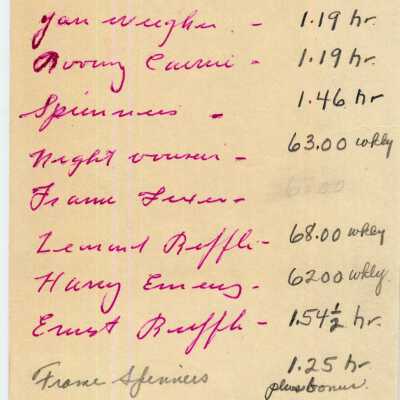 Yarn weigher - 1.19 hr.
Roving Carrier - 1.19 hr.
Spinners - 1.46 hr
Night - 63.00 wkly
Frame Fixer -
Leonard Ruffle - 68.00 wkly
Harry Emery - 62.00 wkly.
Ernst Ruffle - 1.54 1/2 hr.
Frame Spinners 1.25 hr
plus bonus.